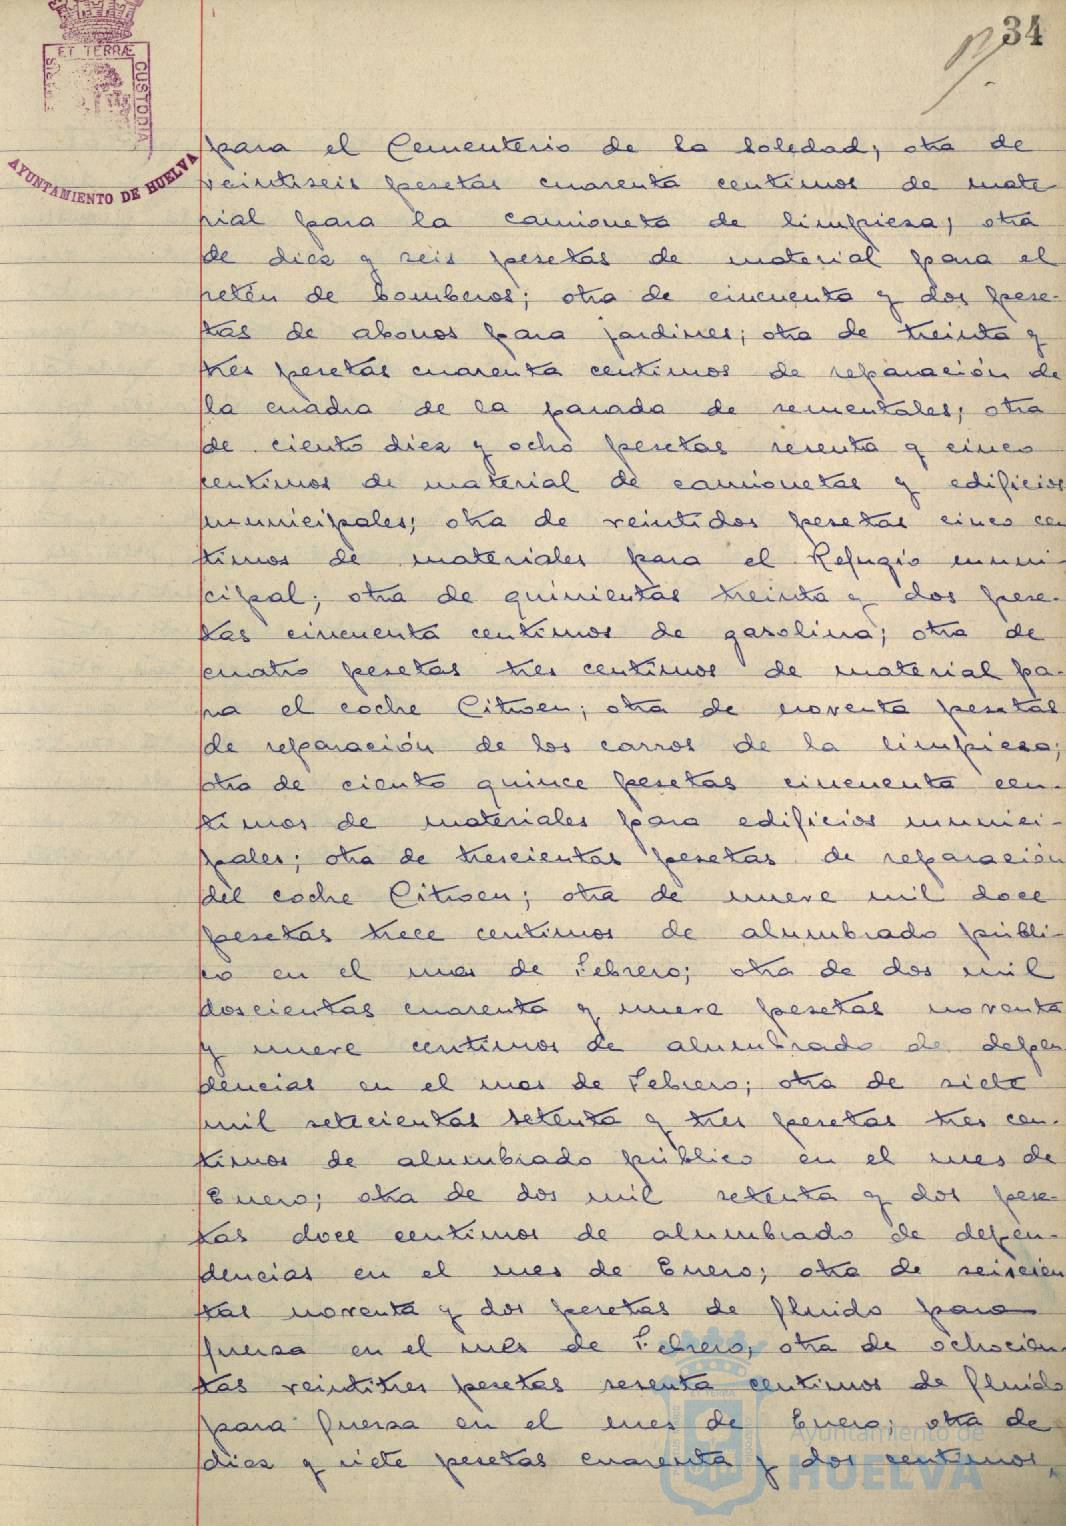 34
ET TERRÆ
CUSTODIA
AYUNTAMIENTO DE HUELVA
para el Cementerio de la Soledad; otra de
veintiseis pesetas cuarenta centimos de mate-
rial para la camioneta de limpieza; otra
de diez y seis pesetas de material para el
retén de bomberos; otra de cincuenta y dos pese-
tas de abonos para jardines; otra de treinta y
tres pesetas cuarenta centimos de reparación de
la cuadra de la parada de sementales; otra
de ciento diez y ocho pesetas sesenta y cinco
centimos de material de camionetas y edificios
municipales; otra de veintidos pesetas cinco cen
timos de materiales para el Refugio muni-
cipal; otra de quinientas treinta y dos pese-
tas cincuenta centimos de gasolina; otra de
cuatro pesetas tres centimos de material pa-
ra el coche Citroen; otra de noventa pesetas
de reparación de los carros de la limpieza;
otra de ciento quince pesetas cincuenta cen-
timos de materiales para edificios munici-
pales; otra de trescientas pesetas de reparación
del coche Citroen; otra de nueve mil doce
pesetas trece centimos de alumbrado públi-
co en el mes de Febrero; otra de dos mil
doscientas cuarenta y nueve pesetas noventa
y nueve centimos de alumbrado de depen
dencias en el mes de Febrero; otra de siete
mil setecientas setenta y tres pesetas tres cen-
timos de alumbrado público en el mes de
Enero; otra de dos mil setenta y dos pese-
tas doce centimos de alumbrado de depen-
dencias en el mes de Enero; otra de seiscien
tas noventa y dos pesetas de fluido para
fuerza en el mes de Febrero; otra de ochocien-
tas veintitres pesetas sesenta centimos de fluido
para fuerza en el mes de Enero; otra de
diez y siete pesetas cuarenta y dos centimos,
Ayuntamiento de
HUELVA